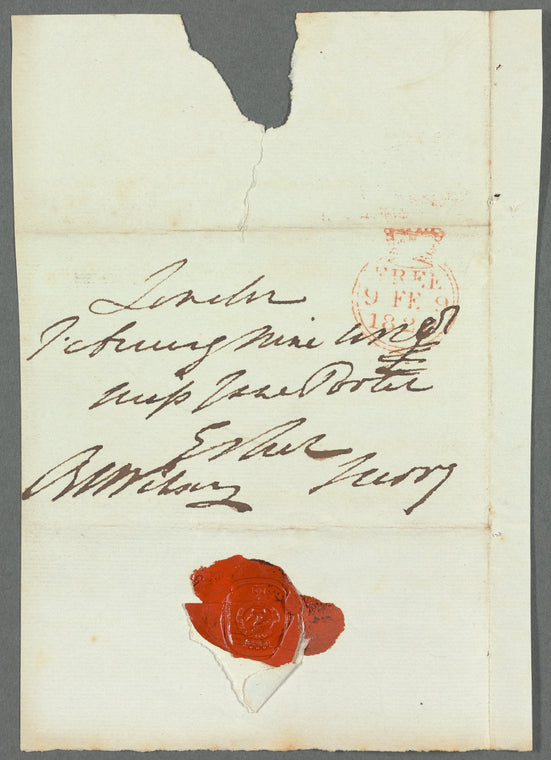 FREE
9 FE 9
182
London
February nine
Miss Jane Porter
Esher
Surry